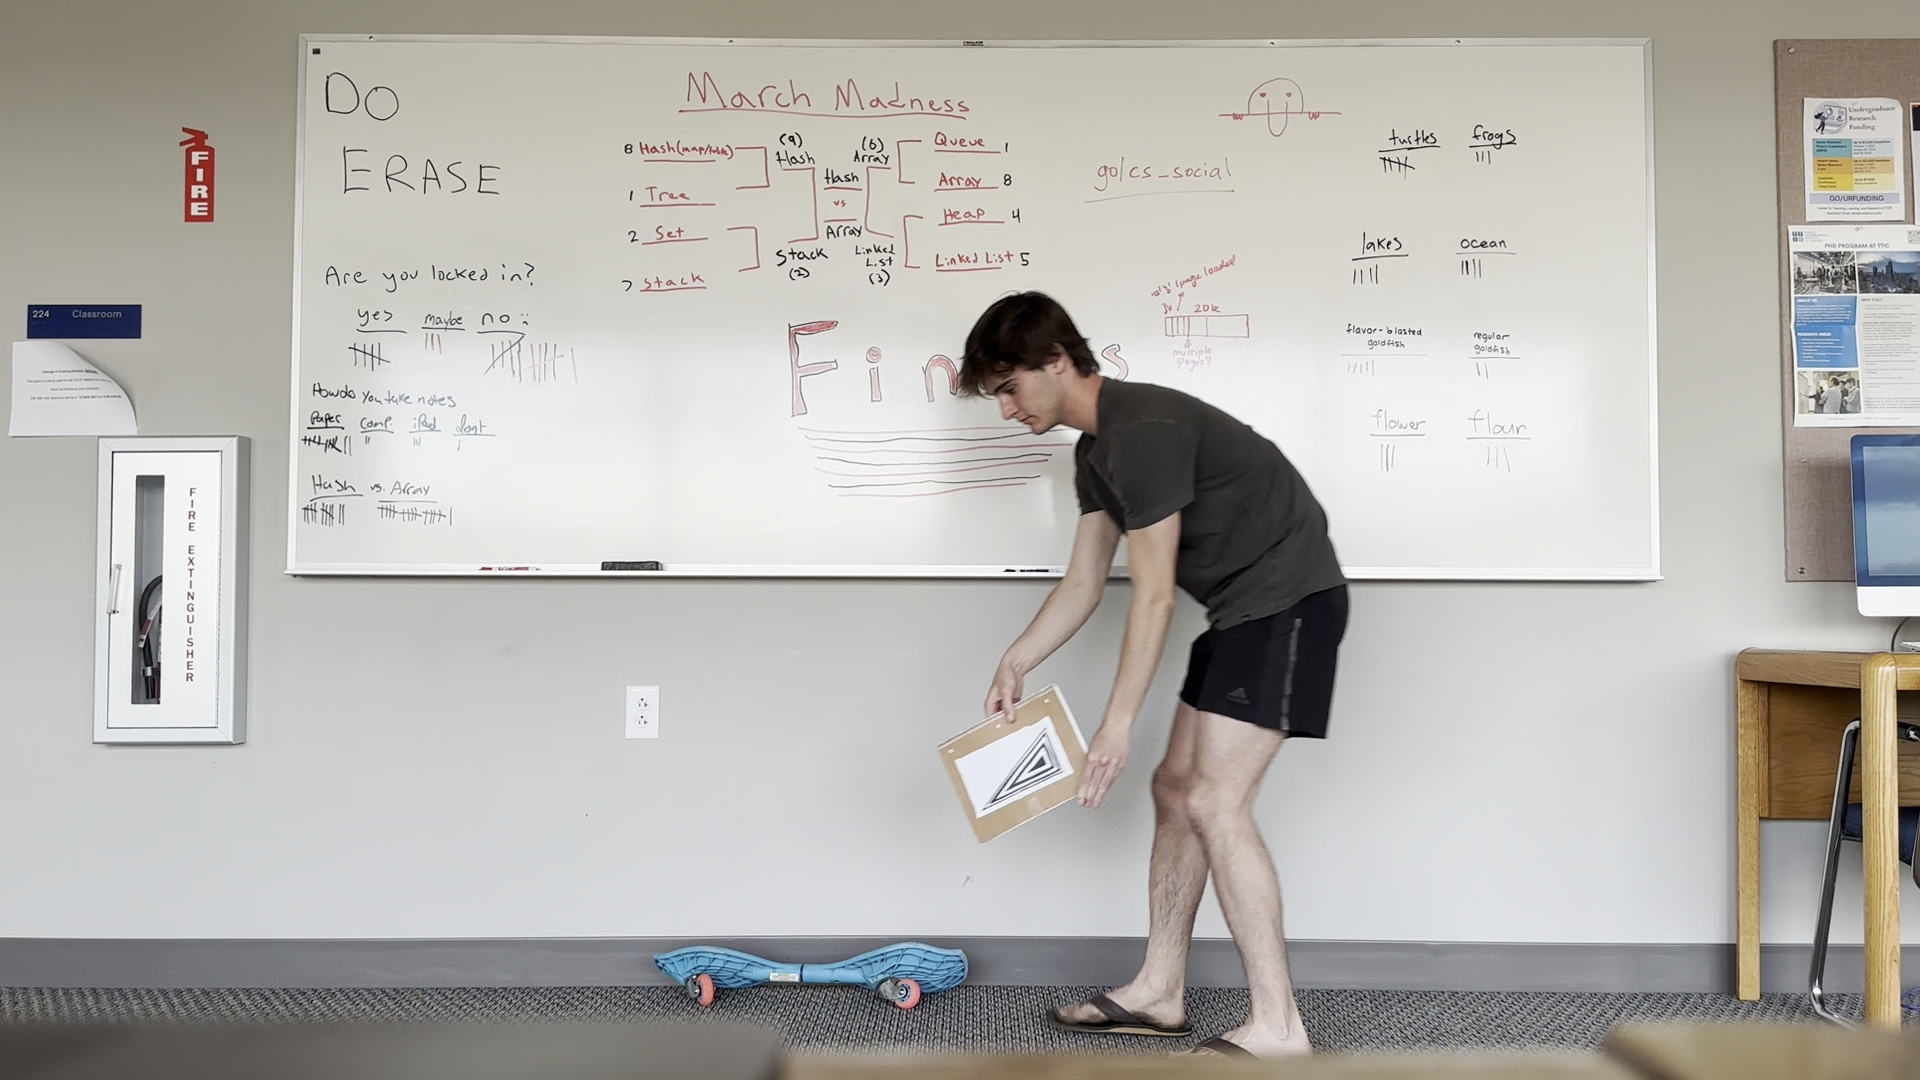 DO
ERASE
Are you locked in?
yes
maybe
no
How do you take notes
Paper
comp.
iPad
dont
Hash vs. Array
March Madness
8 Hash(map/table)
1 Tree
2 Set
7 Stack
(9)
Hash
Stack
(2)
Hash
vs
Array
(6)
Array
Linked
List
(3)
Queue 1
Array 8
Heap 4
Linked List 5
Fin s
go/cs_social
20k
multiple
pages?
turtles
frogs
lakes
ocean
flavor-blasted
goldfish
regular
goldfish
flower
flour
FIRE
224 Classroom
FIRE EXTINGUISHER
Undergraduate
Research
Funding
GO/URFUNDING
PHD PROGRAM AT TTIC